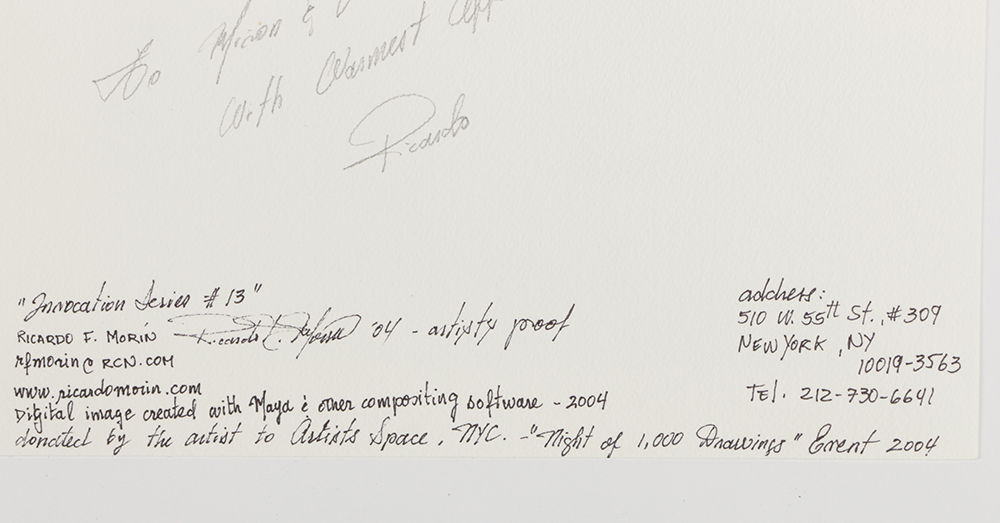 To Mirion &
With Warmest App
Ricardo
"Invocation Series #13"
RICARDO F. MORÍN Ricardo F. Morín '04 - artists proof
rfmorin@RCN.COM
www.ricardomorin.com
Digital image created with Maya & other compositing software - 2004
donated by the artist to Artists Space, NYC. - "Night of 1,000 Drawings" Event 2004
address:
510 W. 55th St., #309
NEW YORK, NY
10019-3563
Tel. 212-730-6641